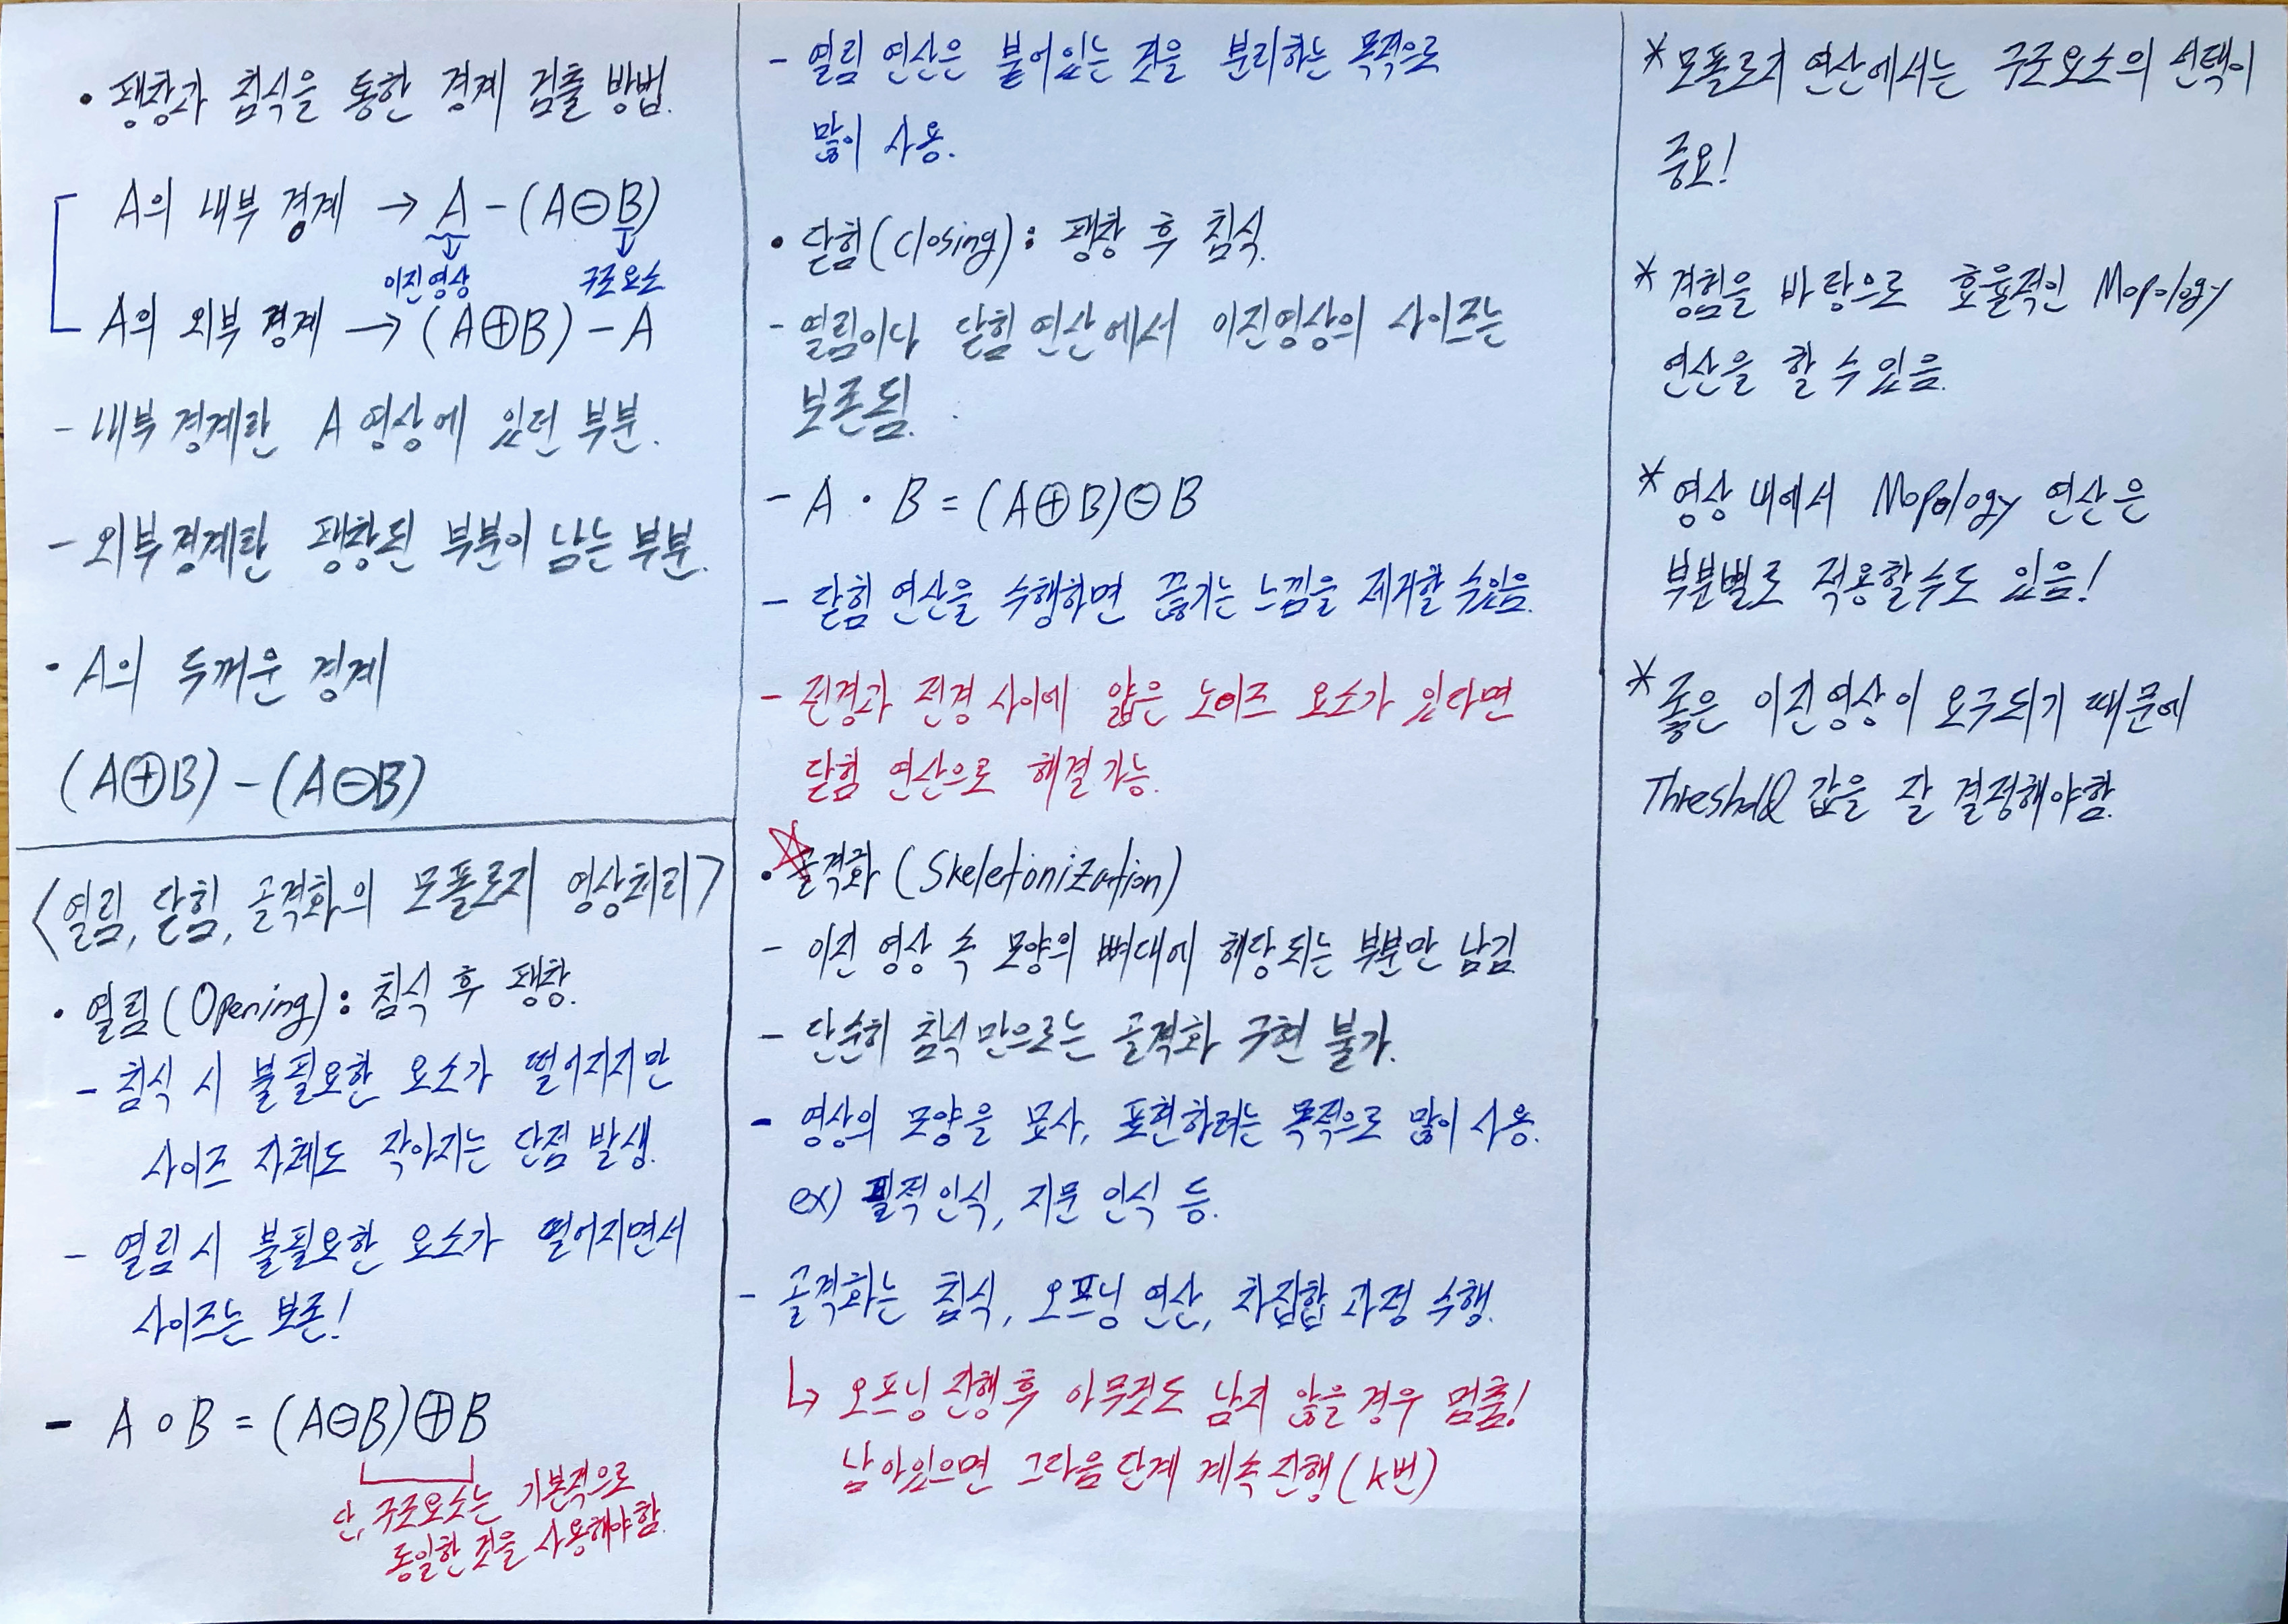 • 팽창과 침식을 통한 경계 검출 방법.
A의 내부 경계 → A - (A⊖B)
이진영상 구조요소
A의 외부 경계 → (A⊕B) - A
- 내부 경계란 A 영상에 있던 부분.
- 외부 경계란 팽창된 부분이 남는 부분.
• A의 두꺼운 경계
(A⊕B) - (A⊖B)
<열림, 닫힘, 골격화의 모폴로지 영상처리>
• 열림(Opening): 침식 후 팽창.
- 침식 시 불필요한 요소가 떨어지지만
사이즈 자체도 작아지는 단점 발생.
- 열림 시 불필요한 요소가 떨어지면서
사이즈는 보존!
- A ∘ B = (A⊖B)⊕B
단, 구조요소는 기본적으로
동일한 것을 사용해야함.
- 열림 연산은 붙어있는 것을 분리하는 목적으로
많이 사용.
• 닫힘(Closing): 팽창 후 침식.
- 열림이나 닫힘 연산에서 이진영상의 사이즈는
보존됨.
- A · B = (A⊕B)⊖B
- 닫힘 연산을 수행하면 끊기는 느낌을 제거할 수있음.
- 전경과 전경 사이에 얇은 노이즈 요소가 있다면
닫힘 연산으로 해결 가능.
• 골격화 (Skeletonization)
- 이진 영상 속 모양의 뼈대에 해당되는 부분만 남김
- 단순히 침식만으로는 골격화 구현 불가.
- 영상의 모양을 묘사, 표현하려는 목적으로 많이 사용.
ex) 필적 인식, 지문 인식 등.
- 골격화는 침식, 오프닝 연산, 차집합 과정 수행.
↳ 오프닝 진행 후 아무것도 남지 않을 경우 멈춤!
남아있으면 그다음 단계 계속 진행 (k번)
* 모폴로지 연산에서는 구조요소의 선택이
중요!
* 경험을 바탕으로 효율적인 Mopology
연산을 할 수 있음.
* 영상 내에서 Mopology 연산은
부분별로 적용할수도 있음!
* 좋은 이진영상이 요구되기 때문에
Threshold 값을 잘 결정해야함.